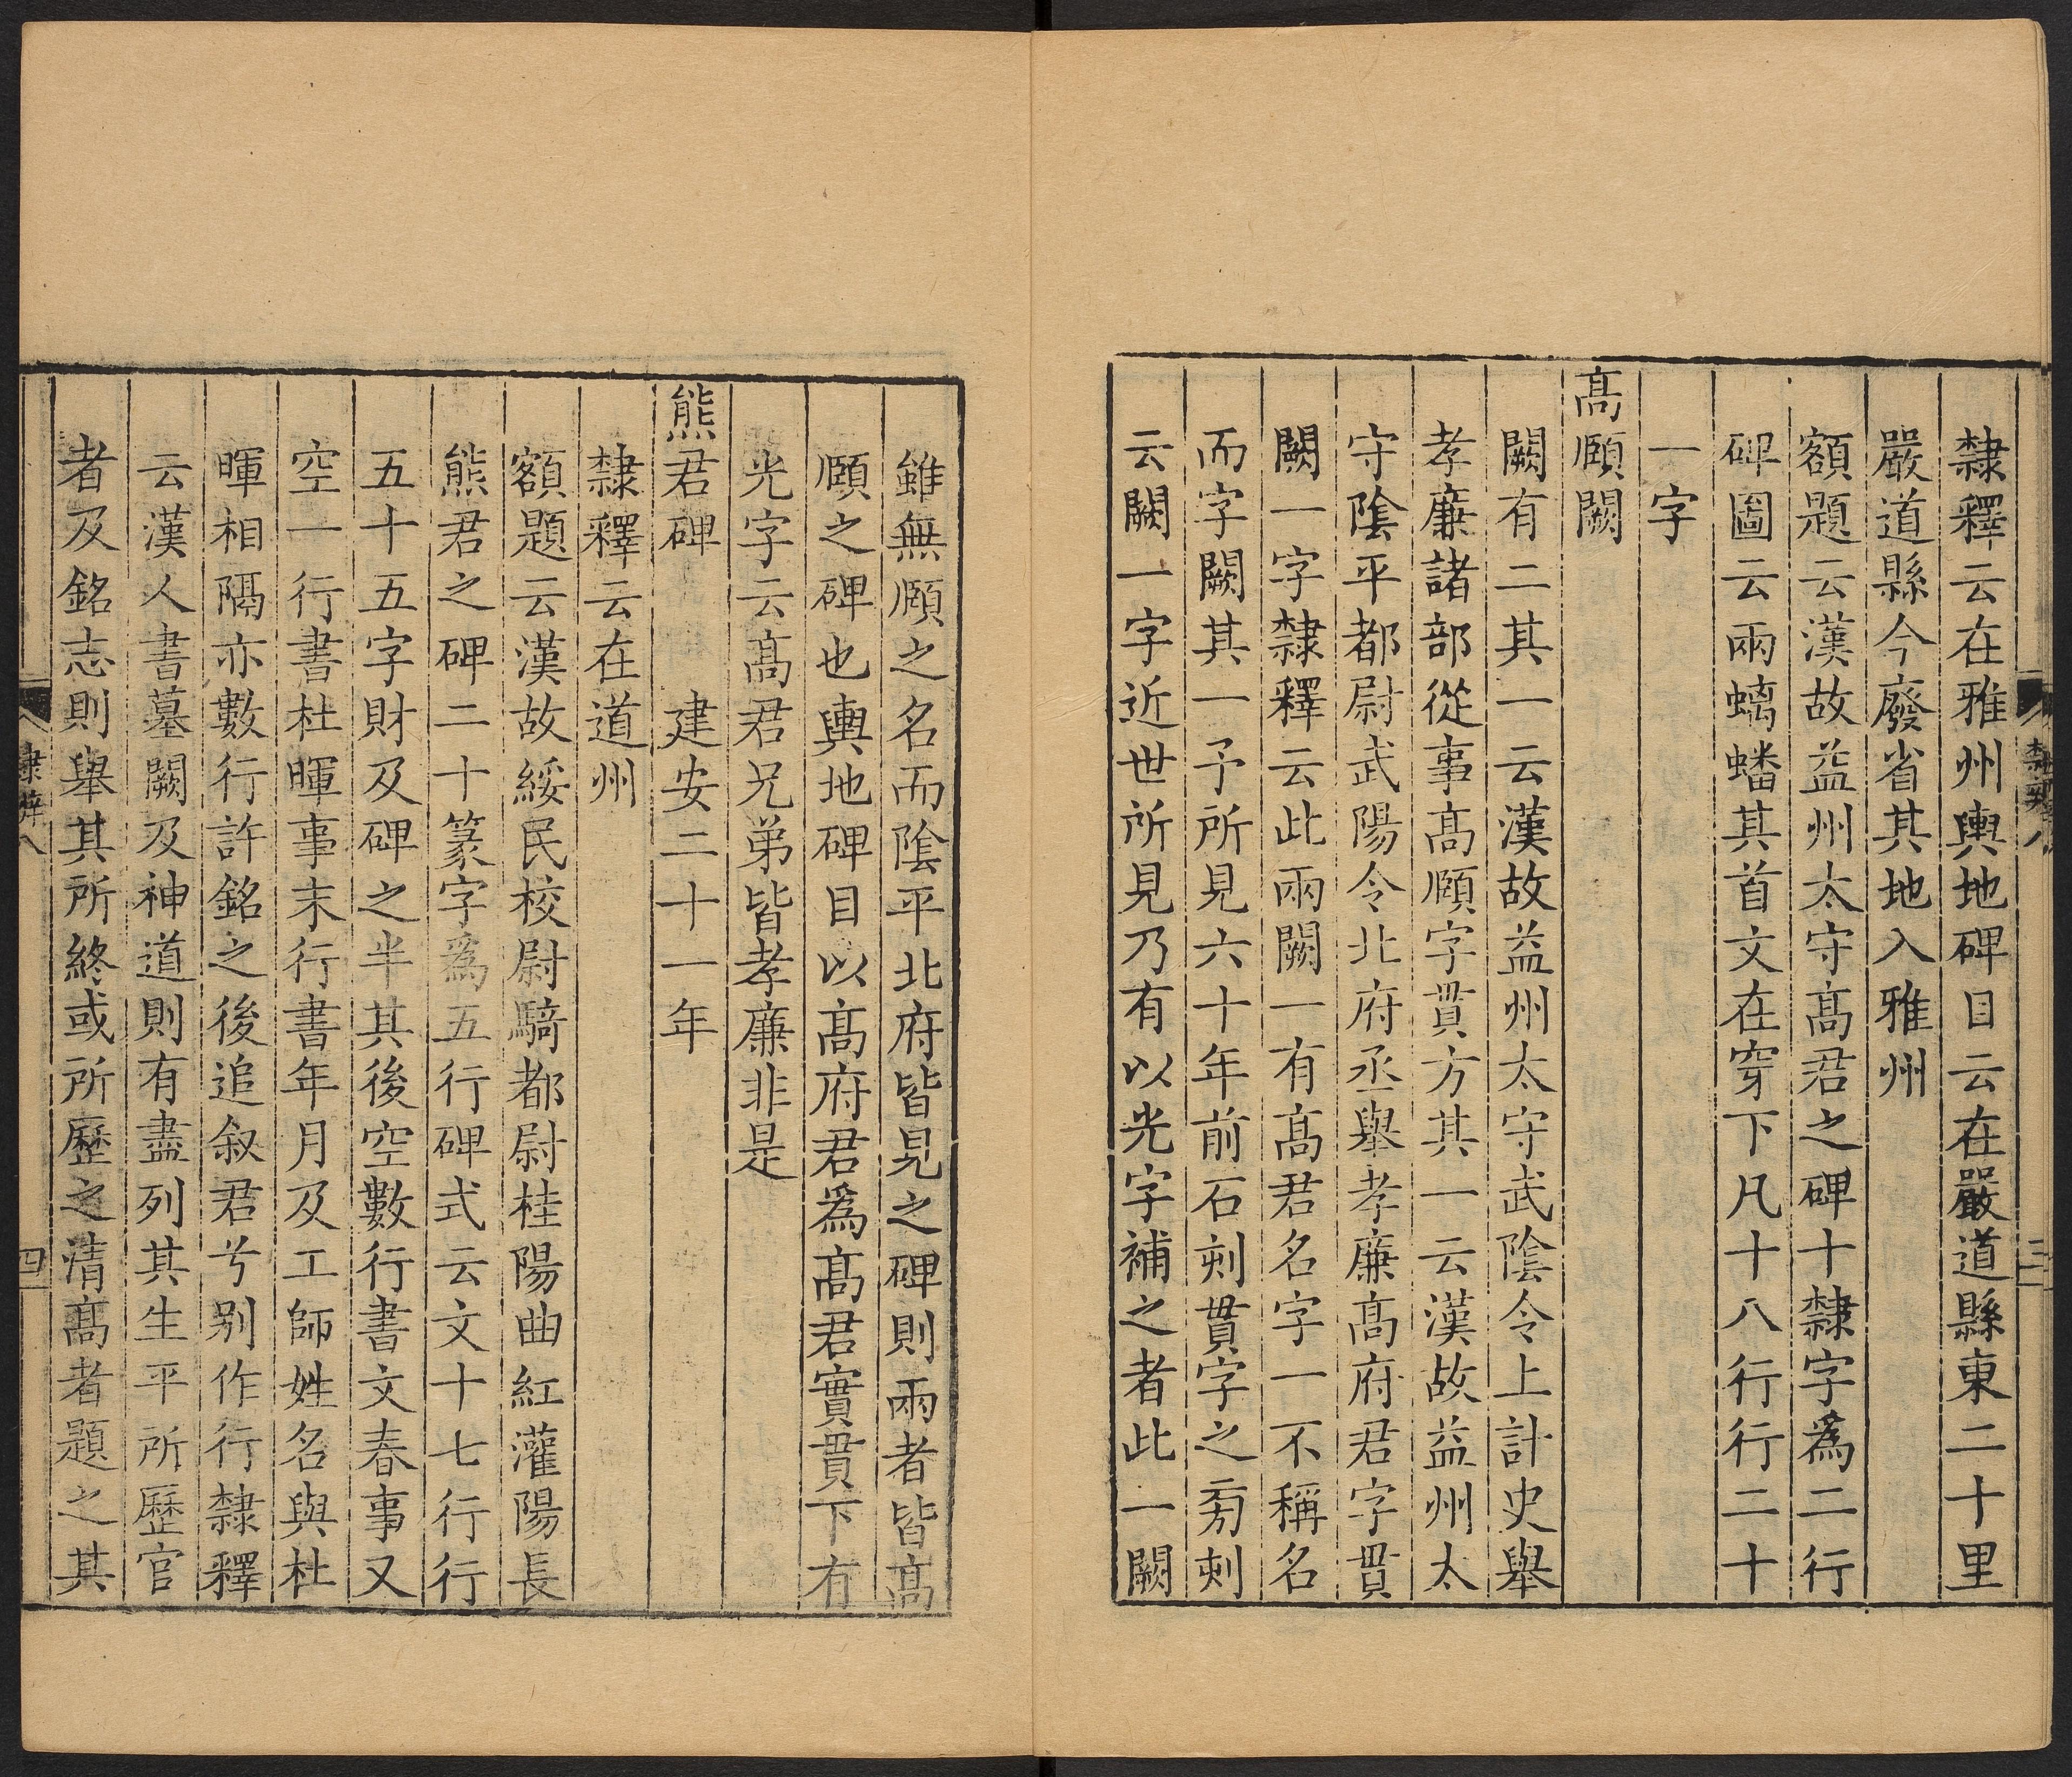 隸釋云在雅州輿地碑目云在嚴道縣東二十里
嚴道縣今廢省其地入雅州
額題云漢故益州太守髙君之碑十隸字爲二行
碑圖云兩螭蟠其首文在穿下凡十八行行二十
一字
髙頤闕
闕有二其一云漢故益州太守武陰令上計史舉
孝廉諸部從事髙頤字貫方其一云漢故益州太
守陰平都尉武陽令北府丞舉孝廉髙府君字貫
闕一字隸釋云此兩闕一有髙君名字一不稱名
而字闕其一予所見六十年前石刻貫字之旁刺
云闕一字近世所見乃有以光字補之者此一闕
雖無頤之名而陰平北府皆見之碑則兩者皆髙
頤之碑也輿地碑目以髙府君爲髙君實貫下有
光字云髙君兄弟皆孝廉非是
熊君碑 建安二十一年
隸釋云在道州
額題云漢故綏民校尉騎都尉桂陽曲紅灌陽長
熊君之碑二十篆字爲五行碑式云文十七行行
五十五字財及碑之半其後空數行書文春事又
空一行書杜暉事末行書年月及工師姓名與杜
暉相隔亦數行許銘之後追叙君兮别作行隸釋
云漢人書墓闕及神道則有盡列其生平所歷官
者及銘志則舉其所終或所歷之清髙者題之其
四